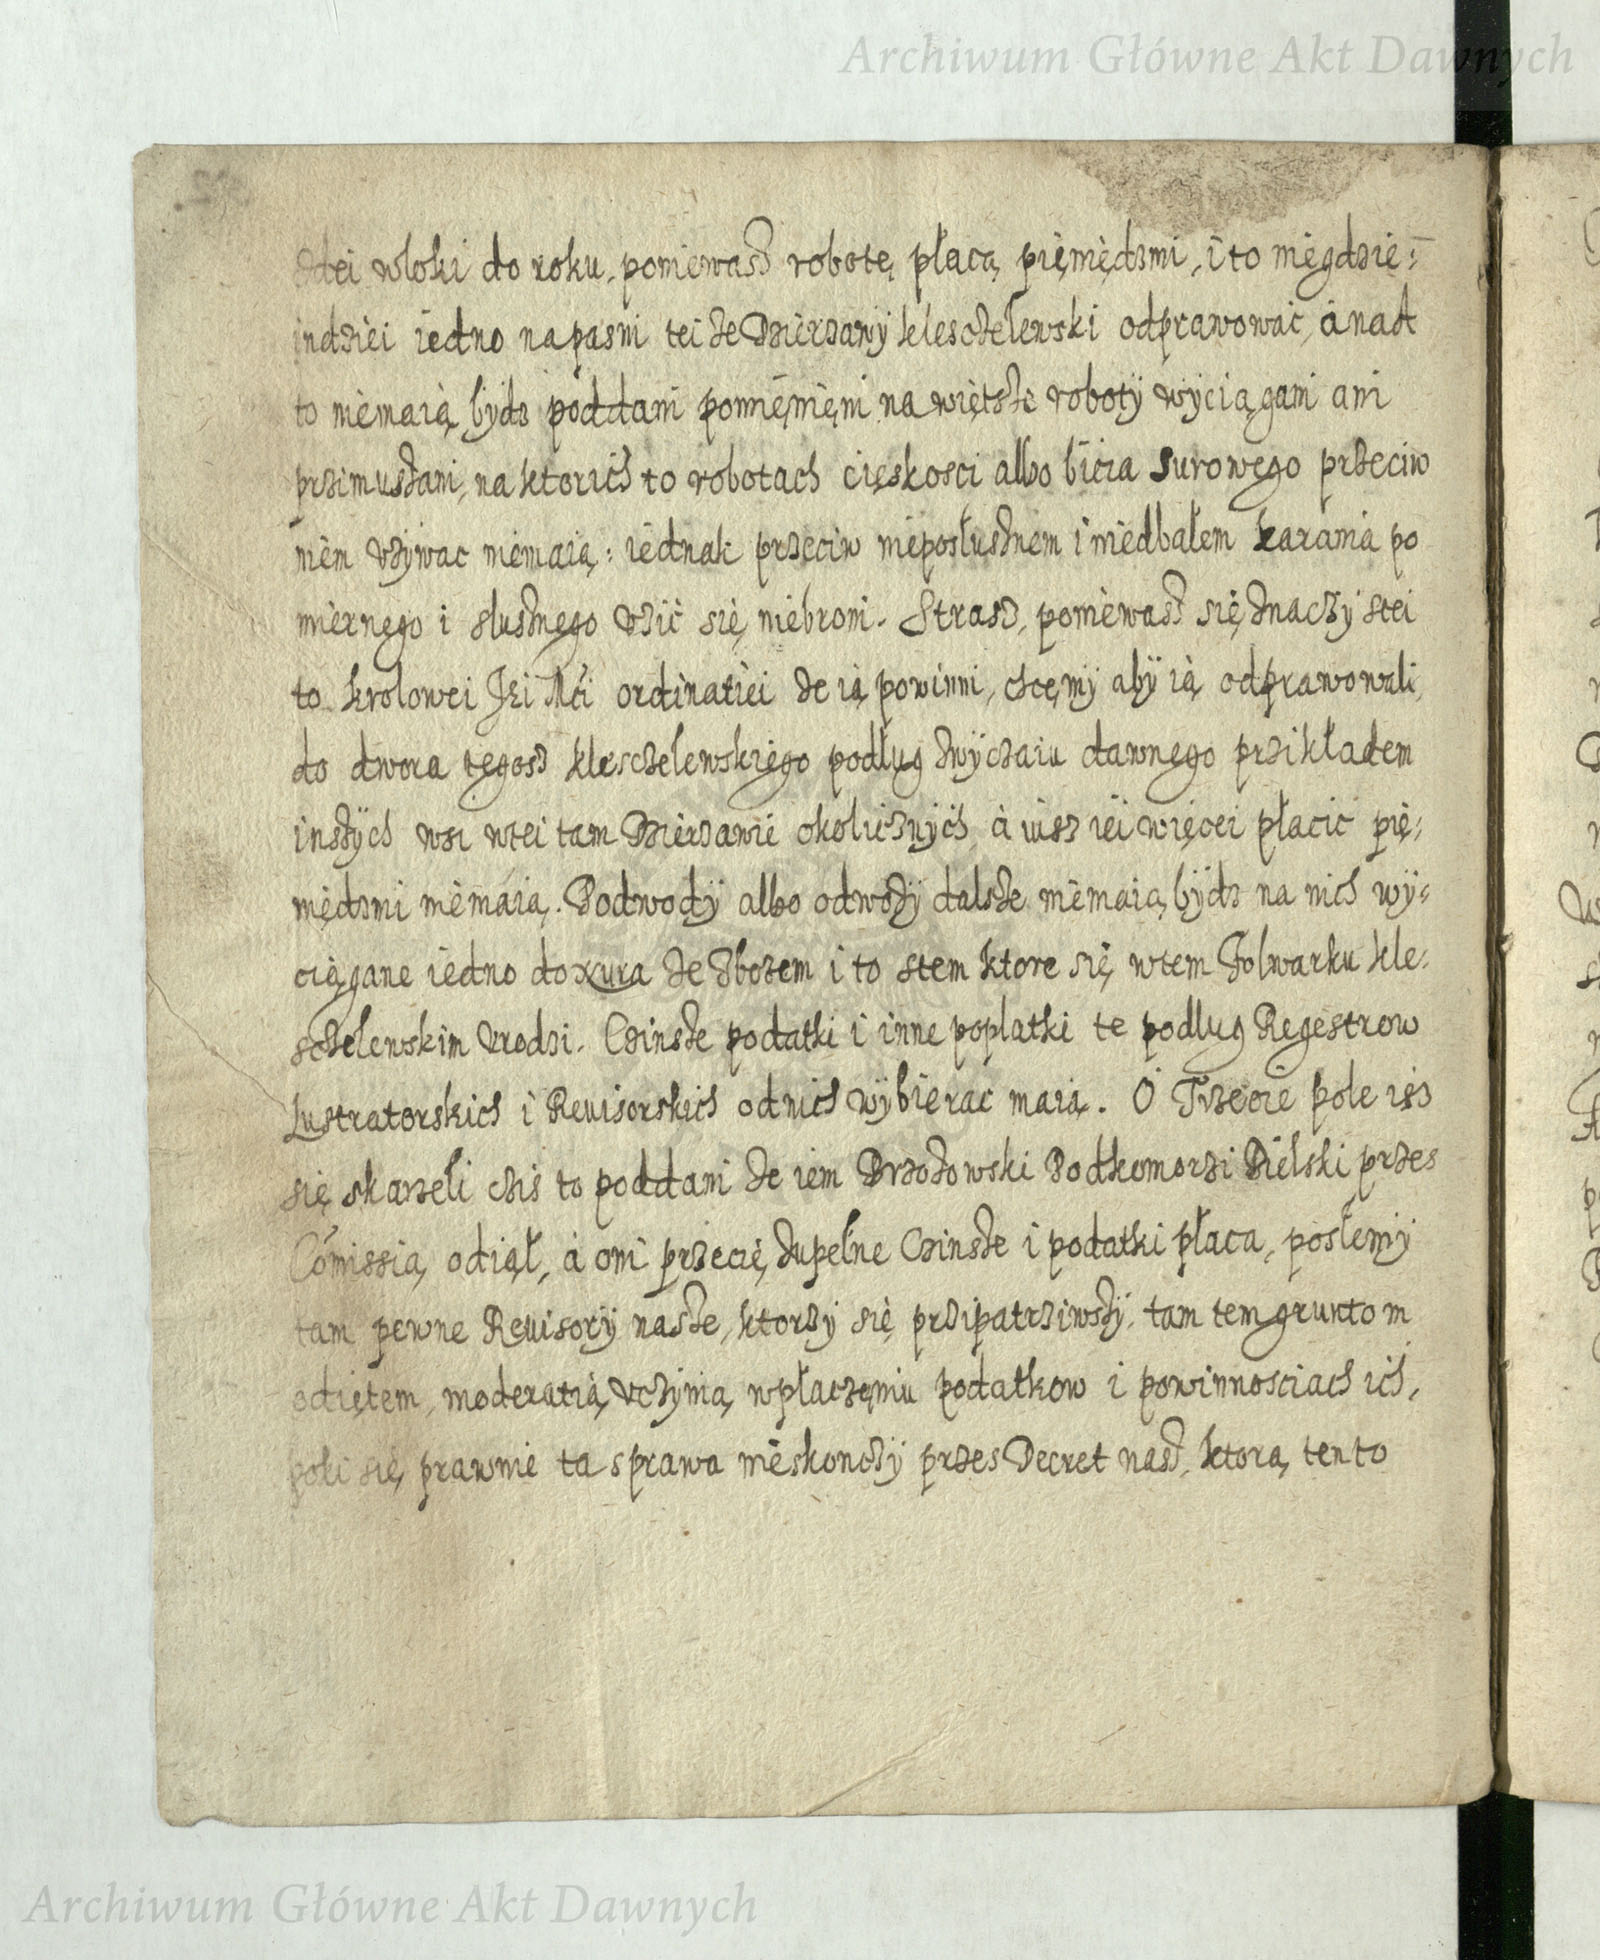 Archiwum Główne Akt Dawnych
żdei włoki do roku, poniewasz robotę płacą pięniędzmi, i to niegdzie=
indziei iedno na pasni tei że Dzierzawÿ kleszczelewski odprawować, á nad
to niemaią bÿdz poddani pomięnięni na więtsze robotÿ wÿciągani ani
przimuszani, na ktorich to robotach cięskosci albo bicia surowego przeciw
niem vzÿwac niemaią: iednak przeciw nieposłusznem i niedbałem karania po
miernego i slusznego vżić się niebroni. Straż, poniewasz się znaczÿ stei
to krolowei Jei Mći ordinatiei że ią powinni, chcęmÿ abÿ ią odprawowali,
do dwora tegosz kleszczelewskięgo podług zwÿczaiu dawnego przikładem
inszÿch wsi wtei tam Dzierzawie okolicznÿch, á iusz iei więcei płacić pię=
niędzmi niemaią. Podwodÿ albo odwozÿ dalsze niemaią bÿdz na nich wÿ=
ciągane iedno do xura ze zbożem i to stem ktore się wtem Folwarku kle=
szczelewskim vrodzi. Czinsze podatki i inne poplatki te podlug Regestrow
Lustratorskich i Reuisorskich odnich wÿbierac maią. O Trzecie pole isz
się skarzeli cziż to poddani że iem Brzozowski Podkomorzi Bielski przes
Comissią odiął, á oni przecię zupełne Czinsze i podatki płaca, poslemÿ
tam pewne Reuisorÿ nasze, ktorzÿ się przipatrziwszÿ tam tem gruntom
odiętem, moderatią vczÿnią wpłaczęniu podatkow i powinnosciach ich,
poki się prawnie ta sprawa nieskonczÿ przes Decret nasz, ktorą tento
Archiwum Główne Akt Dawnych